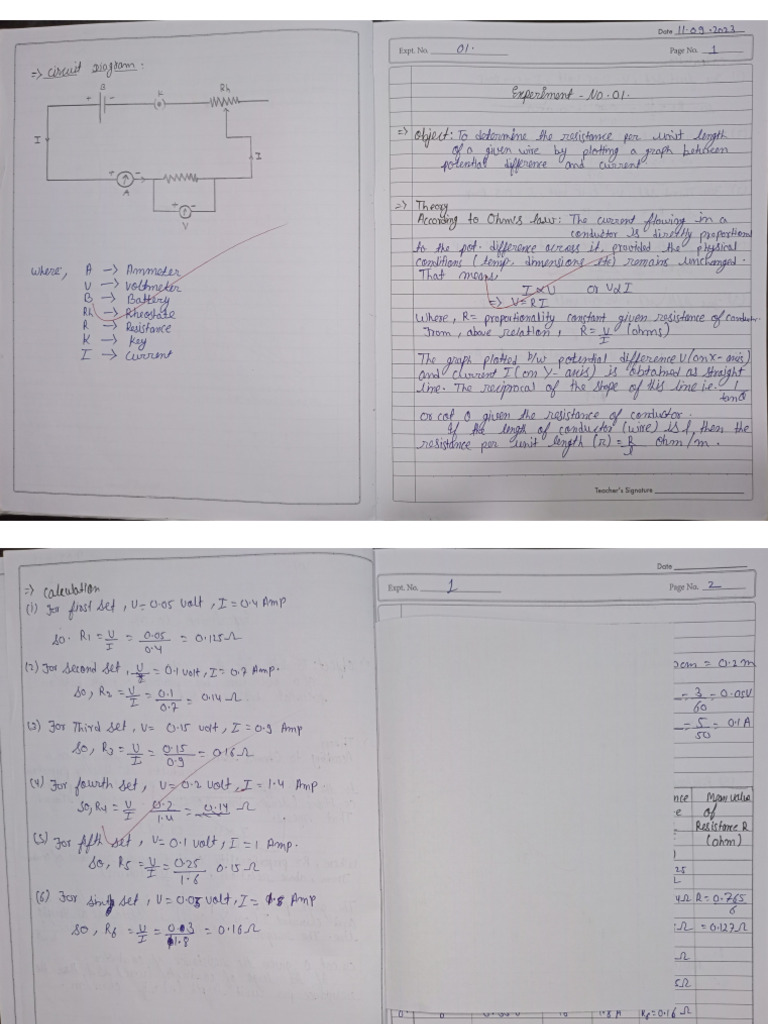 => Circuit Diagram:
B
+ -
K
Rh
I
I
+ -
A
+ -
V
where, A -> Ammeter
V -> Voltmeter
B -> Battery
Rh -> Rheostate
R -> Resistance
K -> Key
I -> Current
Date 11.09.2023
Expt. No. 01.
Page No. 1
Experiment - No. 01.
=> Object: To determine the resistance per unit length
of a given wire by plotting a graph between
potential difference and current
=> Theory
According to Ohm's law: The current flowing in a
conductor is directly proportional
to the pot. difference across it, provided the physical
conditions (temp. dimensions etc) remains unchanged.
That means
I ∝ V or V ∝ I
=> V = RI
Where, R = proportionality constant given resistance of conductor.
From, above relation, R = V/I (ohms)
The graph plotted b/w potential difference V (on X-axis)
and current I (on Y-axis) is obtained as straight
line. The reciprocal of the slope of this line i.e. 1/tanθ
or cot θ given the resistance of conductor.
If the length of conductor (wire) is l, then the
resistance per unit length (r) = R/l ohm/m.
Teacher's Signature
=> Calculation
(1) For first set, V = 0.05 volt, I = 0.4 Amp
so. R1 = V/I = 0.05/0.4 = 0.125 Ω
(2) For second set, V = 0.1 volt, I = 0.7 Amp.
so, R2 = V/I = 0.1/0.7 = 0.14 Ω
(3) For Third set, V = 0.15 volt, I = 0.9 Amp
so, R3 = V/I = 0.15/0.9 = 0.16 Ω
(4) For fourth set, V = 0.2 volt, I = 1.4 Amp.
so, R4 = V/I 0.2/1.4 = 0.14 Ω
(5) For fifth set, V = 0.1 volt, I = 1 Amp.
so, R5 = V/I = 0.25/1.6 0.15 Ω
(6) For set, V = volt, I = 1.8 Amp
so, R6 = V/I = 0.3/1.8 = 0.16 Ω
Date
Expt. No. 1
Page No. 2
cm = 0.2 m
= 3/60 = 0.05V
= 5/50 = 0.1 A
nce Mean value
e of
Resistance R
(ohm)
25
4Ω R = 0.765/6
Ω = 0.127Ω
Ω
5Ω
1.8 A R6 = 0.16 Ω